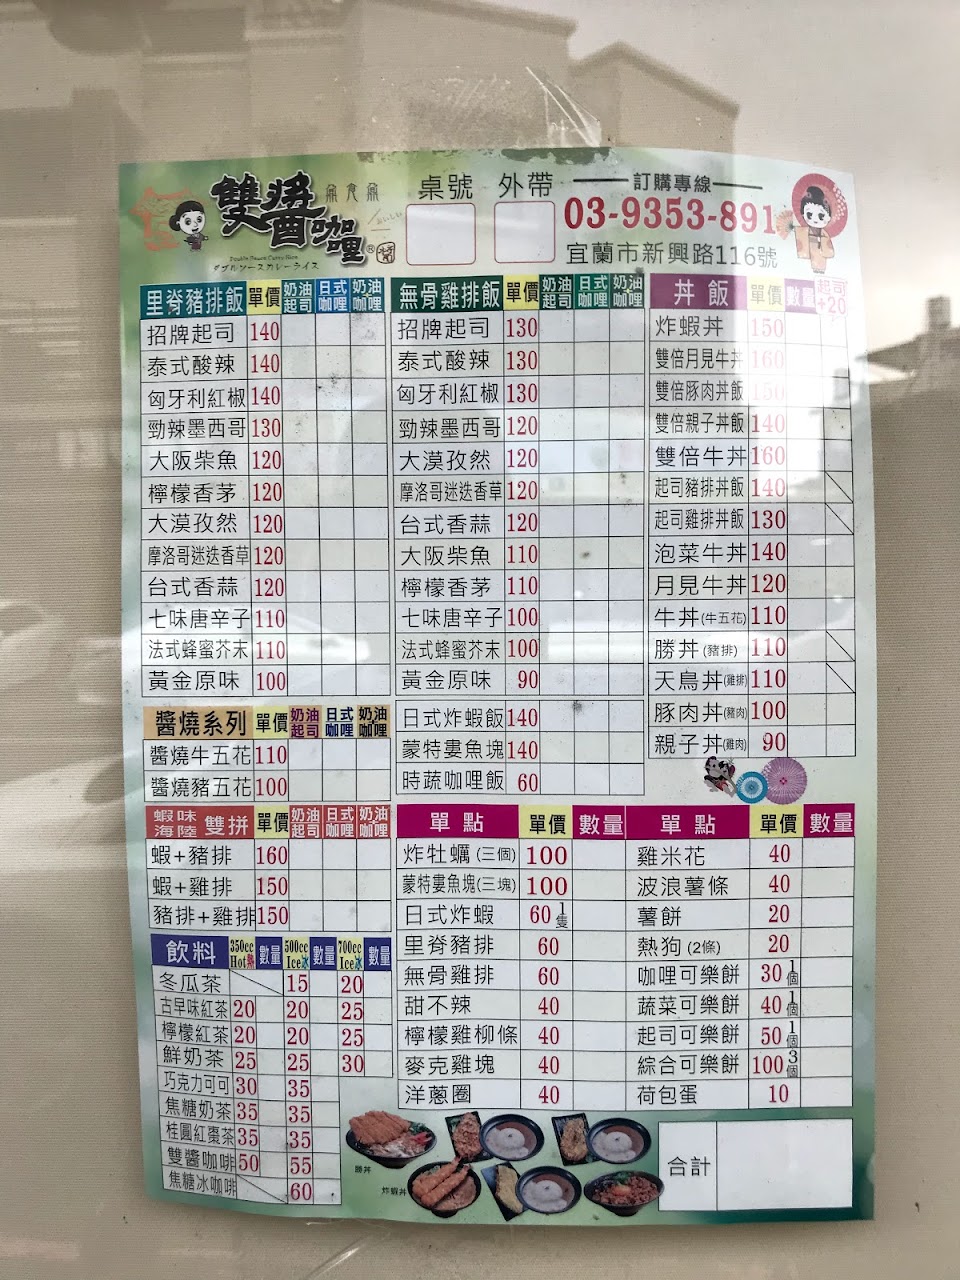 雙醬咖哩®
Double Sauce Curry Rice
ダブルソースカレーライス
桌號 外帶
訂購專線
03-9353-891
宜蘭市新興路116號
里脊豬排飯 單價 奶油起司 日式咖哩 奶油咖哩
招牌起司 140
泰式酸辣 140
匈牙利紅椒 140
勁辣墨西哥 130
大阪柴魚 120
檸檬香茅 120
大漠孜然 120
摩洛哥迷迭香草 120
台式香蒜 120
七味唐辛子 110
法式蜂蜜芥末 110
黃金原味 100
無骨雞排飯 單價 奶油起司 日式咖哩 奶油咖哩
招牌起司 130
泰式酸辣 130
匈牙利紅椒 130
勁辣墨西哥 120
大漠孜然 120
摩洛哥迷迭香草 120
台式香蒜 120
大阪柴魚 110
檸檬香茅 110
七味唐辛子 100
法式蜂蜜芥末 100
黃金原味 90
日式炸蝦飯 140
蒙特婁魚塊 140
時蔬咖哩飯 60
丼飯 單價 數量 起司+20
炸蝦丼 150
雙倍月見牛丼 160
雙倍豚肉丼飯 150
雙倍親子丼飯 140
雙倍牛丼 160
起司豬排丼飯 140
起司雞排丼飯 130
泡菜牛丼 140
月見牛丼 120
牛丼(牛五花) 110
勝丼(豬排) 110
天鳥丼(雞排) 110
豚肉丼(豬肉) 100
親子丼(雞肉) 90
醬燒系列 單價 奶油起司 日式咖哩 奶油咖哩
醬燒牛五花 110
醬燒豬五花 100
蝦味海陸 雙拼 單價 奶油起司 日式咖哩 奶油咖哩
蝦+豬排 160
蝦+雞排 150
豬排+雞排 150
飲料 350cc Hot熱 數量 500cc Ice冰 數量 700cc Ice冰 數量
冬瓜茶 15 20
古早味紅茶 20 20 25
檸檬紅茶 20 20 25
鮮奶茶 25 25 30
巧克力可可 30 35
焦糖奶茶 35 35
桂圓紅棗茶 35 35
雙醬咖啡 50 55
焦糖冰咖啡 60
單點 單價 數量
炸牡蠣(三個) 100
蒙特婁魚塊(三塊) 100
日式炸蝦 60 1隻
里脊豬排 60
無骨雞排 60
甜不辣 40
檸檬雞柳條 40
麥克雞塊 40
洋蔥圈 40
單點 單價 數量
雞米花 40
波浪薯條 40
薯餅 20
熱狗(2條) 20
咖哩可樂餅 30 1個
蔬菜可樂餅 40 1個
起司可樂餅 50 1個
綜合可樂餅 100 3個
荷包蛋 10
勝丼
炸蝦丼
合計